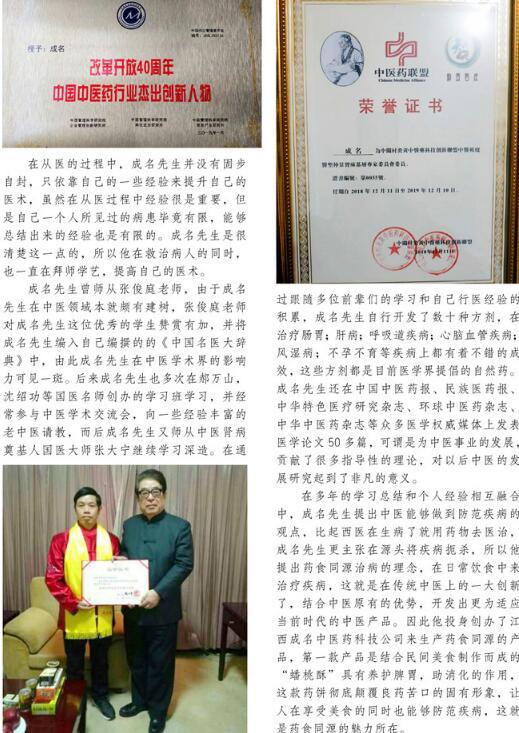 授予：成名
改革开放40周年
中国中医药行业杰出创新人物
在从医的过程中，成名先生并没有固步
自封，只依靠自己的一些经验来提升自己的
医术，虽然在从医过程中经验很重要，但
是自己一个人所见过的病患毕竟有限，能够
总结出来的经验也是有限的。成名先生是很
清楚这一点的，所以他在救治病人的同时，
也一直在拜师学艺，提高自己的医术。
成名先生曾师从张俊庭老师，由于成名
先生在中医领域本就颇有建树，张俊庭老师
对成名先生这位优秀的学生赞赏有加，并将
成名先生编入自己编撰的的《中国名医大辞
典》中，由此成名先生在中医学术界的影响
力可见一斑。后来成名先生也多次在郝万山，
沈绍功等国医名师创办的学习班学习，并经
常参与中医学术交流会，向一些经验丰富的
老中医请教，而后成名先生又师从中医肾病
奠基人国医大师张大宁继续学习深造。在通
中医药联盟
Chinese Medicine Alliance
荣誉证书
过跟随多位前辈们的学习和自己行医经验的
积累，成名先生自行开发了数十种方剂，在
治疗肠胃；肝病；呼吸道疾病；心脑血管疾病；
风湿病；不孕不育等疾病上都有着不错的成
效，这些方剂都是目前医学界提倡的自然药。
成名先生还在中国中医药报、民族医药报、
中华特色医疗研究杂志、环球中医药杂志、
中华中医药杂志等众多医学权威媒体上发表
医学论文50多篇，可谓是为中医事业的发展，
贡献了很多指导性的理论，对以后中医的发
展研究起到了非凡的意义。
在多年的学习总结和个人经验相互融合
中，成名先生提出中医能够做到防范疾病的
观点，比起西医在生病了就用药物去医治，
成名先生更主张在源头将疾病扼杀，所以他
提出药食同源治病的理念，在日常饮食中来
治疗疾病，这就是在传统中医上的一大创新
了，结合中医原有的优势，开发出更为适应
当前时代的中医产品。因此他投身创办了江
西成名中医药科技公司来生产药食同源的产
品，第一款产品是结合民间美食制作而成的
“蟠桃酥”具有养护脾胃，助消化的作用，
这款药饼彻底颠覆良药苦口的固有形象，让
人在享受美食的同时也能够防范疾病，这就
是药食同源的魅力所在。